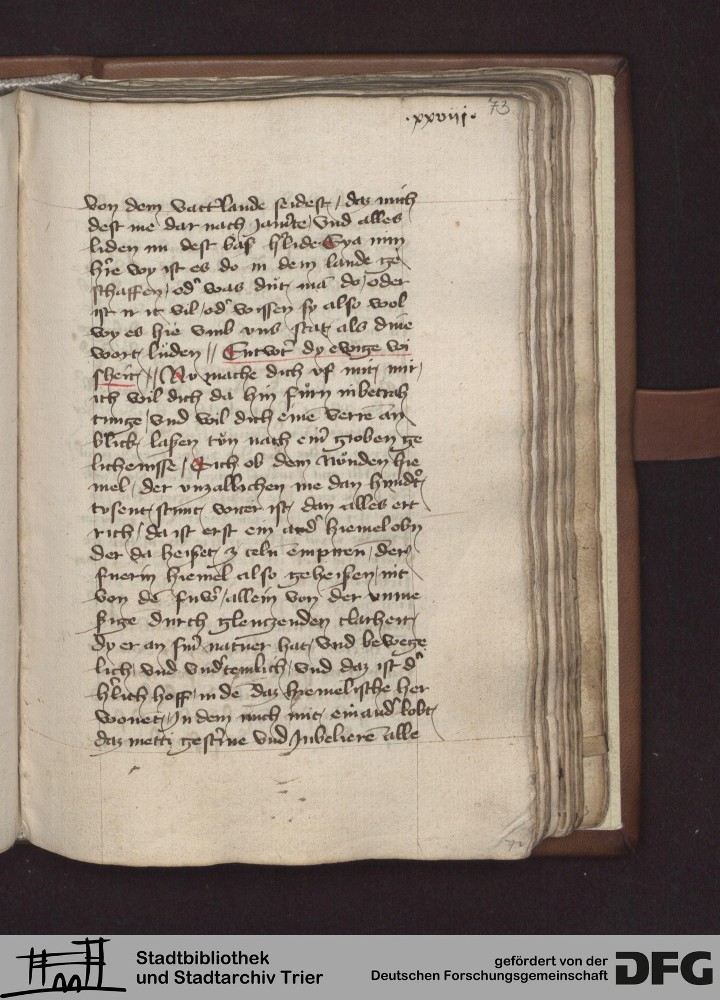 ·xxviij·
73
von dem vatt'lande seidest / daz mich
dest me dar nach jam'te / vnd alles
liden im dest baß h'lide · Eya min
h're wy ist es do in dem lande ge
schaffen / od' was dut ma do / oder
ist ir it vil / od' wissen sy also wol
wy es hie vmb vns stat / als dine
wort luden // Entwt' dy ewige wi
sheit // Nv mache dich vf mit mir /
ich wil dich da hin furn in betrah
tunge / vnd wil dich eine verre an
blick / lasen tun nach ein' groben ge
lichenisse / Sich ob dem nunden hie
mel / der vnzallichen me dan hundt'
tvsent stunt / witer ist / dan alles ert
rich / da ist erst ein and' hiemel obn
der da heiset / celu empireu / der
fuerin hiemel also geheisen / nit
von de fuw' / allein von der vnme
sige durch glentzenden clarheit /
dy er an sin' natuer hat / vnd bewege
lich / vnd vnd'temlich / vnd daz ist d'
h'lich hoff / in de daz hiemelische her
wonet / in dem mich mit einand' lobt /
daz metti gestirne vnd jubeliere alle
Stadtbibliothek
und Stadtarchiv Trier
gefördert von der
Deutschen Forschungsgemeinschaft
DFG